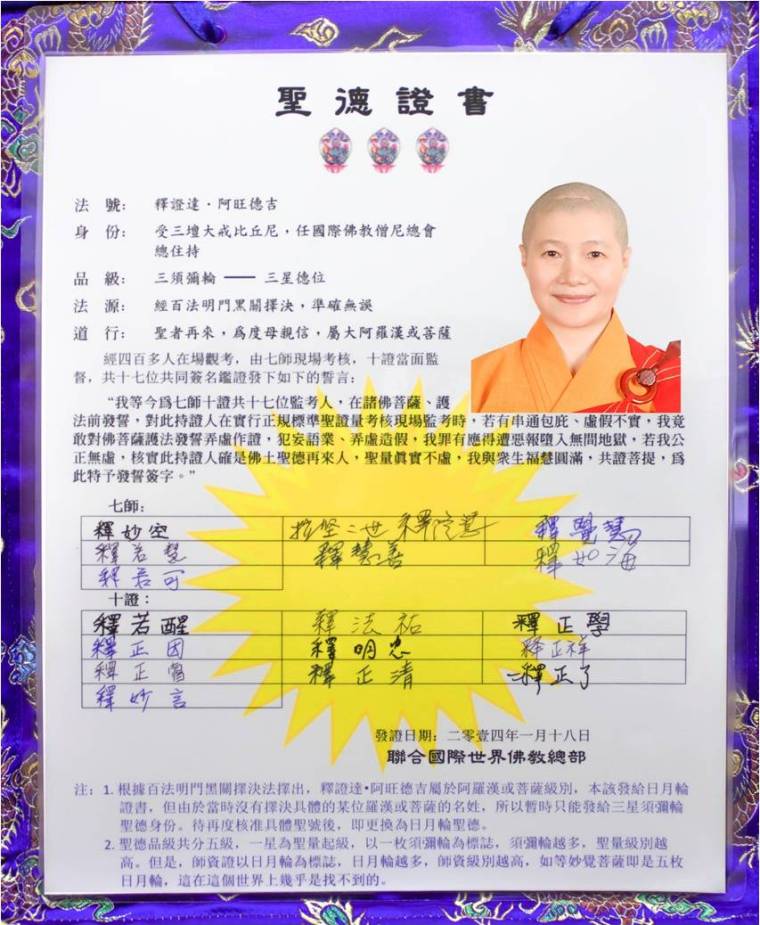 聖德證書
法　號：　釋證達·阿旺德吉
身　份：　受三壇大戒比丘尼，任國際佛教僧尼總會
總住持
品　級：　三須彌輪 —— 三星德位
法　源：　經百法明門黑關擇決，準確無誤
道　行：　聖者再來，為度母親信，屬大阿羅漢或菩薩
經四百多人在場觀考，由七師現場考核，十證當面監
督，共十七位共同簽名鑑證發下如下的誓言：
“我等今為七師十證共十七位監考人，在諸佛菩薩、護
法前發誓，對此持證人在實行正規標準聖證量考核現場監考時，若有串通包庇、虛假不實，我竟
敢對佛菩薩護法發誓弄虛作證，犯妄語業、弄虛造假，我罪有應得遭惡報墮入無間地獄，若我公
正無虛，核實此持證人確是佛土聖德再來人，聖量眞實不虛，我與衆生福慧圓滿，共證菩提，爲
此特予發誓簽字。”
七師：
釋妙空　釋覺慧
釋若慧　釋慧善　釋如海
釋若可
十證：
釋若醒　釋法祐　釋正學
釋正因　釋明忠　釋正祥
釋正　釋正清　釋正了
釋妙言
發證日期：二零壹四年一月十八日
聯合國際世界佛教總部
注：1. 根據百法明門黑關擇決法擇出，釋證達•阿旺德吉屬於阿羅漢或菩薩級別，本該發給日月輪
證書，但由於當時沒有擇決具體的某位羅漢或菩薩的名姓，所以暫時只能發給三星須彌輪
聖德身份。待再度核准具體聖號後，即更換為日月輪聖德。
2. 聖德品級共分五級，一星為聖量起級，以一枚須彌輪為標誌，須彌輪越多，聖量級別越
高。但是，師資證以日月輪為標誌，日月輪越多，師資級別越高，如等妙覺菩薩即是五枚
日月輪，這在這個世界上幾乎是找不到的。